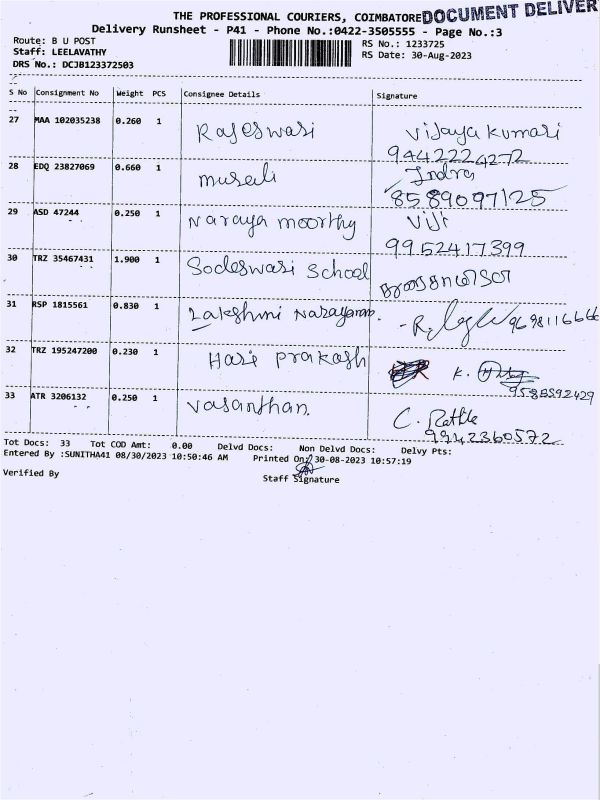 THE PROFESSIONAL COURIERS, COIMBATORE DOCUMENT DELIVER
Delivery Runsheet - P41 - Phone No.:0422-3505555 - Page No.:3
Route: B U POST RS No.: 1233725
Staff: LEELAVATHY RS Date: 30-Aug-2023
DRS No.: DCJB123372503
S No Consignment No Weight PCS Consignee Details Signature
27 MAA 102035238 0.260 1 Rajeswari Vijaya kumari
9442224272
28 EDQ 23827069 0.660 1 murali Indra
8589097125
29 ASD 47244 0.250 1 Naraya moorthy Viji
9952417399
30 TRZ 35467431 1.900 1 School
31 RSP 1815561 0.830 1 Lakshmi Narayanan. 9698116666
32 TRZ 195247200 0.230 1 Hari Prakash K.
33 ATR 3206132 0.250 1 Vasanthan. C.
9942360572
Tot Docs: 33 Tot COD Amt: 0.00 Delvd Docs: Non Delvd Docs: Delvy Pts:
Entered By :SUNITHA41 08/30/2023 10:50:46 AM Printed On: 30-08-2023 10:57:19
Verified By Staff Signature